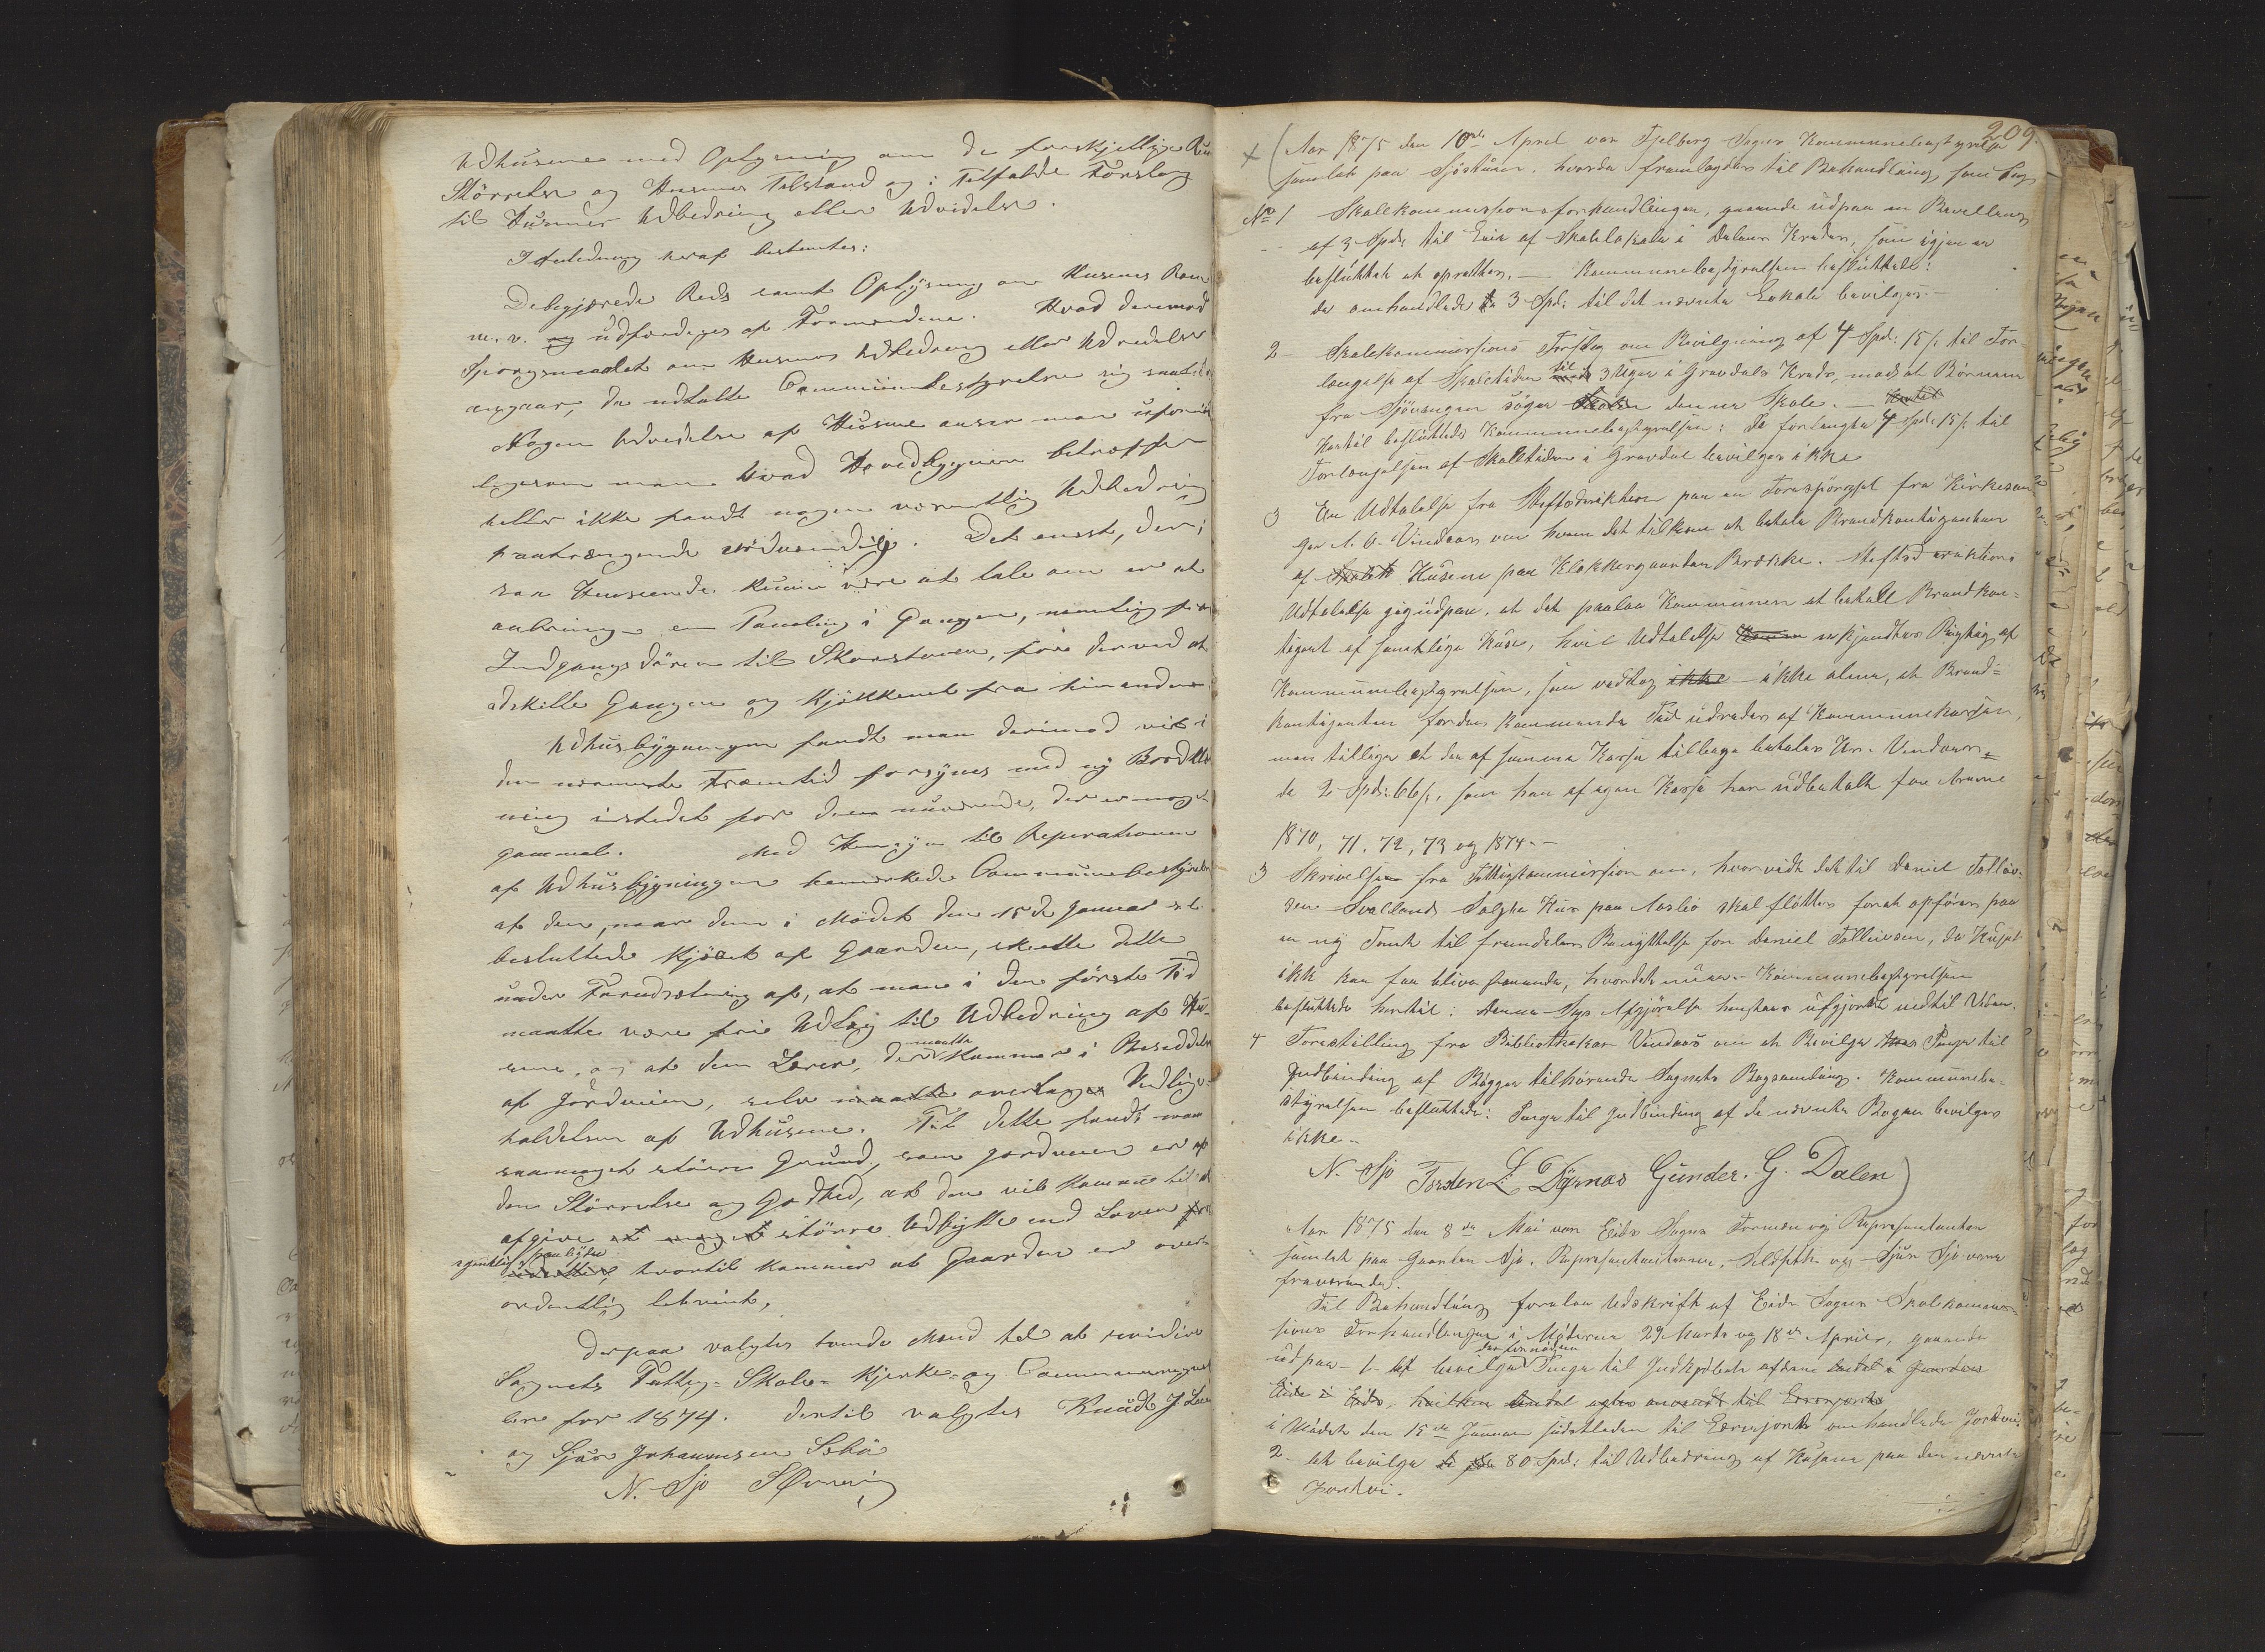 Udhusene med Oplysning om de forskjellige Rums
Størrelse og Husenes Tilstand og i Tilfælde Forslag
til Husenes Udbedring eller Udvidelse.
I Anledning heraf bestemtes:
De begjærede Rids samt Oplysning om Husenes Rum
m. v. udfærdiges af Formændene. Hvad derimod
Spørgsmaalet om Husenes Udbedring eller Udvidelse
angaar, da udtalte Communebestyrelsen sig saaledes
Nogen Udvidelse af Husene anser man ufornøden
ligesom man hvad Hovedbygningen betræffer
heller ikke fandt nogen væsentlig Udbedring
paatrængende nødvendig. Det eneste, der i
saa Henseende kunne være at tale om er at
anbringe en Paneling i Gangen, nemlig fra
Indgangsdøren til Skorstenen, for derved at
adskille Gangen og Kjøkkenet fra hinanden.
Udhusbygningen fandt man derimod vil i
den nærmeste Fremtid forsynes med ny Bordklæd
ning istedet for den nuværende, der er noget
gammel. Med Hensyn til Reparationen
af Udhusbygningen bemærkede Communebestyrelsen
at den, naar den i Mødet den 15de Januar d. A.
besluttede Kjøbet af Gaarden, skeede dette
under Forudsætning af, at man i den første Tid
maatte være fri Udlæg til Udbedring af Hu-
sene, og at den Lærer, der maatte komme i Besiddelse
af Jordveien, selv overtager Vedlige-
holdelsen af Udhusene. Til dette fandt man
saameget større Grund, som Jordveien er af
den Størrelse og Godhed, at den vil komme til at
afgive større Udbytte end Loven
egentlig paabyder hvortil kommer at Gaarden er over-
ordentlig letvint,
Derpaa valgtes tvende Mænd til at revidere
Sognets Fattig- Skole- Kjerke- og Communeregnska
ber for 1874. Dertil valgtes Knud J Lee
og Sjur Johannesen Sebø
N. Sjo S Ørnvig
209.
Aar 1875 den 10de April var Fjelberg Sogns Kommunebestyrelse
samlet paa Sjostuen, hvorda fremlagdes til Behandling som Sag
No 1 Skolekommissionsforhandlingen, gaaende udpaa en Bevillning
af 3 Spd. til Leie af Skolelokale i Dalens Kreds, som igjen er
besluttet at oprettes. — Kommunebestyrelsen besluttede:
de omhandlede 3 Spd. til det nævnte Lokale bevilges.—
2 Skolekommissions Forslag om Bevilgning af 4 Spd. 15 s. til For-
længelse af Skoletiden til 3 Uger i Gravdals Kreds, mod at Børnene
fra Sjøvangen søger denne Skole. —
Hertil besluttede Kommunebestyrelsen: De forlangte 4 Spd. 15 s. til
Forlængelsen af Skoletiden i Gravdal bevilges ikke
3 En Udtalelse fra Stiftsdirektion paa en Forespørgsel fra Kirkesan
ger A. O. Vindaas om hvem det tilkom at betale Brandkontigenten
af Husene paa Klokkergaarden Brække. Stiftsdirektions
Udtalelse gik udpaa, at det paalaa Kommunen at betale Brandkon-
tigent af samtlige Huse, hvis Udtalelse erkjendtes Rigtig af
Kommunebestyrelsen, som vedtog ikke alene, at Brand-
kontigenten fordens kommende Tid udredes af Kommunekassen,
men tillige at der af samme Kasse tilbage betales Hr. Vindaas
de 2 Spd. 66 s., som han af egen Kasse har udbetalt for Aarene
1870, 71, 72, 73 og 1874.—
3 Skrivelse fra Fattigkommission om, hvorvidt det til Daniel Tollev-
sen Svelland Solgte Hus paa Aaslio skal flyttes forat opføres paa
en ny Tomt til fremdeles Benyttelse for Daniel Tollevsen, da Huset
ikke kan faa blive staaende, hvordet nu er.— Kommunebestyrelsen
besluttede hertil: Denne Sags Afgjørelse henstaar uafgjort indtil Viden.
4 Forestilling fra Bibliothekar Vindaas om at Bevilge Penge til
Indbinding af Bøgger tilhørende Sognets Bogsamling. Kommunebe-
styrelsen besluttede: Penge til Indbinding af de nævnte Bøger bevilges
ikke.—
N. Sjo Torsten L Dyrnes Gunder. G. Dalen
Aar 1875 den 8de Mai var Eids Sogns Formen og Representanter
samlet paa Gaarden Sjo. Representanterne, og Sjur Sjo vare
fraværende.
Til Behandling forelaa Udskrift af Eids Sogns Skolekommis-
sions Forhandlinger i Møterne 29 Marts og 18de April, gaaende
ud paa 1. at bevilge de fornødne Penge til Indkjøbet af den
i Mødet den 15de Januar sidstleden til omhandlede Jordvei.
2 at bevilge 80 Spd. til Udbedring af Husene paa den nævnte
Jordvei.